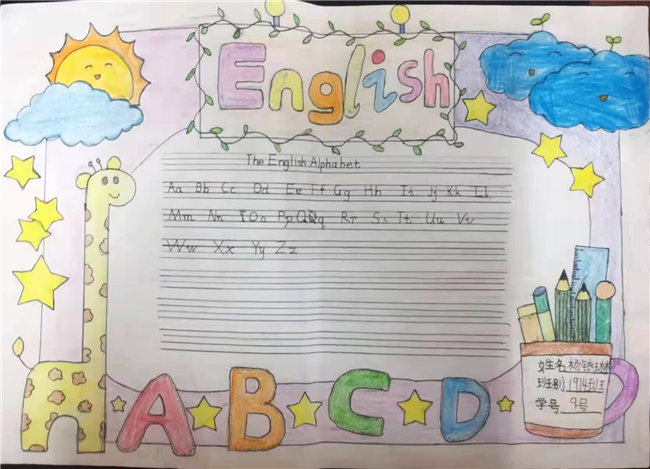 English
The English Alphabet
Aa Bb Cc Dd Ee Ff Gg Hh Ii Jj Kk Ll
Mm Nn Oo Pp QQq Rr Ss Tt Uu Vv
Ww Xx Yy Zz
A B C D
姓名 杨
班别 1914班
学号 9号